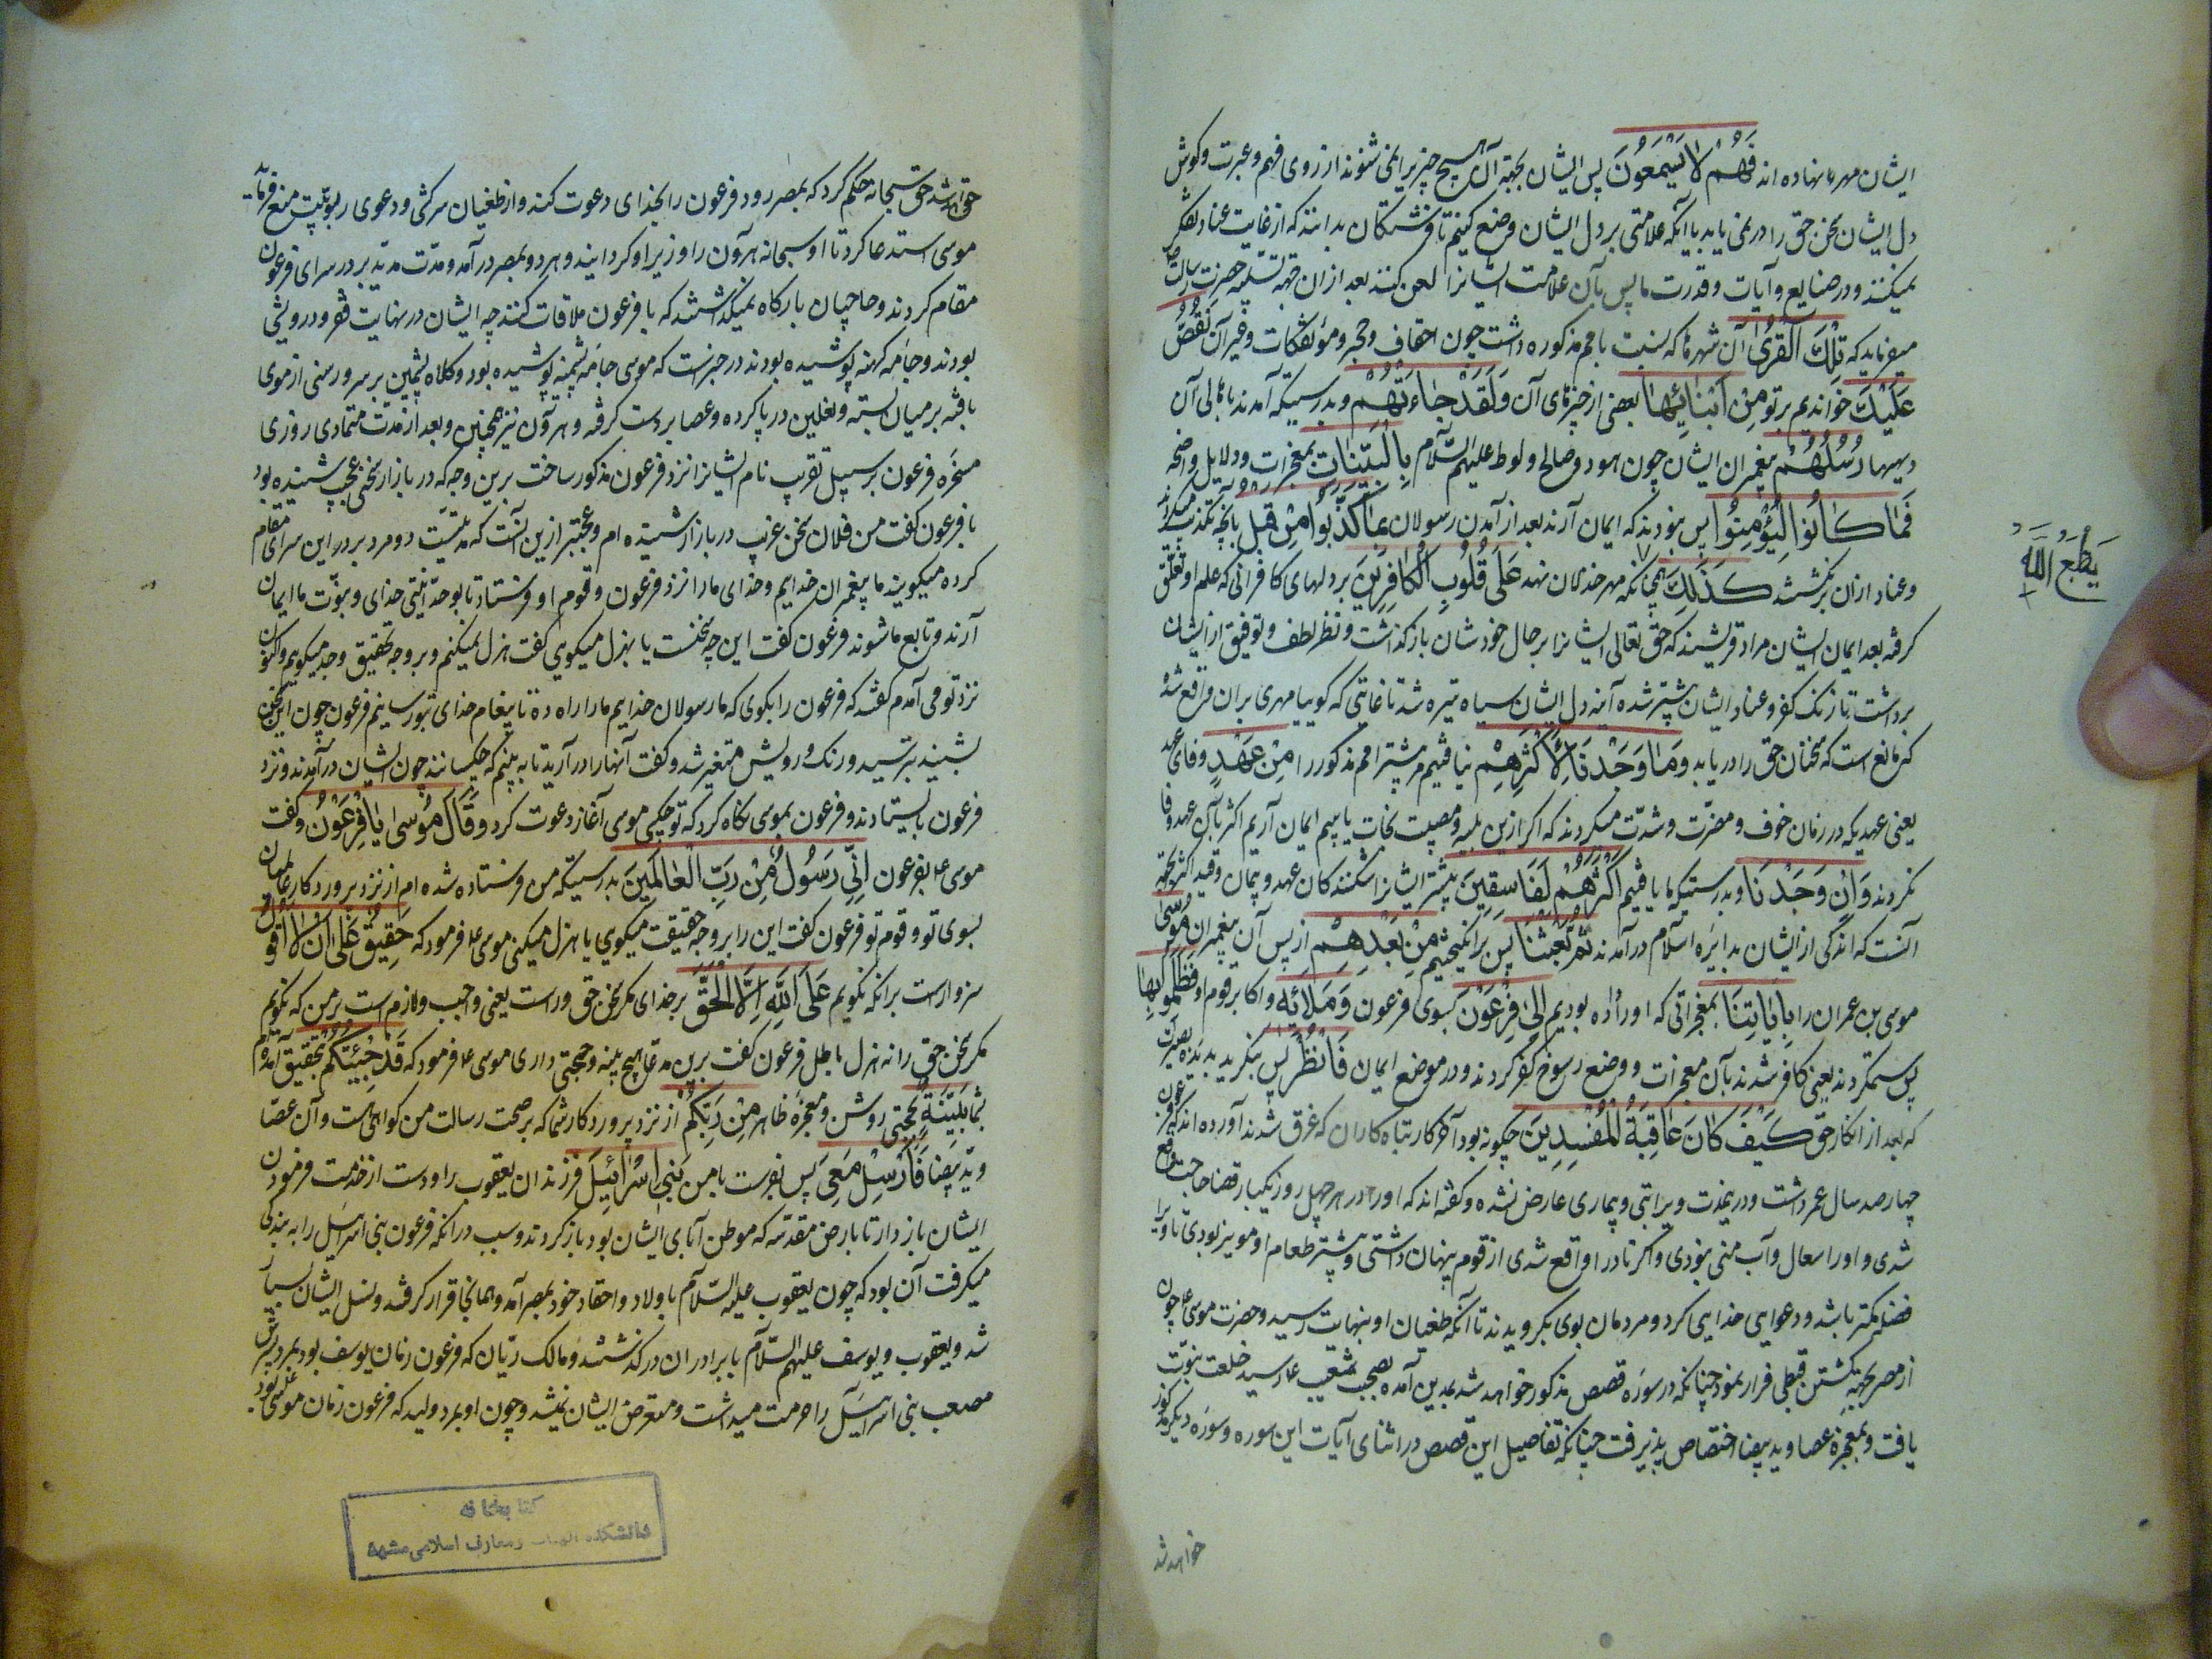 ایشان مهرها نهاده اند فَهُمْ لا یَسْمَعُونَ پس ایشان بجهة آن هیچ چیز را نمی شنوند از روی فهم و عبرت و کوش
دل ایشان سخن حق را در نمی یابد یا آنکه علامتی بر دل ایشان وضع کنیم تا فرشتکان بدانند که از غایت عناد تفکر
نمیکنند و در صنایع و آیات و قدرت ما پس بآن علامت ایشانرا لعن کنند بعد از ان جهة تسلیه حضرت رسالت
میفرماید که تِلْکَ الْقُریٰ آن شهرها که نسبت با امم مذکوره داشت چون احقاف و حجر و مؤتفکات و غیر آن نَقُصُّ
عَلَیْکَ خواندیم بر تو مِنْ اَنْبٰائِهٰا بعضی از خبرهای آن وَلَقَدْ جٰاءَتْهُمْ و بدرستیکه آمدند باهالی آن
دیهها رُسُلُهُمْ پیغمبران ایشان چون هود و صالح و لوط علیهم السّلام بِالْبَیِّنٰاتِ بمعجزات و دلایل واضحه
فَمٰا کٰانُوا لِیُؤْمِنُوا پس نبودند که ایمان آرند بعد از آمدن رسولان بِمٰا کَذَّبُوا مِنْ قَبْلُ بآنچه تکذیب میکردند
و عناد از ان برنکشتند کَذٰلِکَ همچنانکه مهر خذلان نهد عَلیٰ قُلُوبِ الْکٰافِرِینَ بر دلهای کافرانی که علم او تعلّق
یَطْبَعُ اللّهُ
کرفته بعدم ایمان ایشان مراد قریشند که حق تعالی ایشانرا بر حال خودشان باز کذاشت و نظر لطف و توفیق از ایشان
برداشت تا زنک کفر و عناد ایشان بیشتر شده آینه دل ایشان سیاه و تیره شد تا غایتی که کوییا مهری بران واقع شده
که مانع است که سخنان حق را در یابد وَمٰا وَجَدْنٰا لِاَکْثَرِهِمْ نیافتیم مر بیشتر امم مذکور را مِنْ عَهْدٍ وفای عهد
یعنی عهدیکه در زمان خوف و مضرّت و شدّت میکردند که اکر ازین بلیه و مصیبت نجات یابیم ایمان آریم اکثر بآن عهد وفا
نکردند وَاِنْ وَجَدْنٰا و بدرستیکه ما یافتیم اَکْثَرَهُمْ لَفٰاسِقِینَ بیشتر ایشانرا شکنندکان عهد و پیمان و قید اکثر بجهة
آنست که اندکی از ایشان بدایره اسلام درآمدند ثُمَّ بَعَثْنٰا پس برانکیختیم مِنْ بَعْدِهِمْ از پس آن پیغمبران مُوسیٰ
موسی بن عمران را بِآیٰاتِنٰا بمعجزاتی که او را داده بودیم اِلیٰ فِرْعَوْنَ بسوی فرعون وَمَلَائِهِ و اکابر قوم او فَظَلَمُوا بِهٰا
پس ستم کردند یعنی کافر شدند بآن معجزات و وضع رسوخ کفر کردند و در موضع ایمان فَانْظُرْ پس بنکرید بدیده بصیرت
که بعد از انکار حق کَیْفَ کٰانَ عٰاقِبَةُ الْمُفْسِدِینَ چکونه بود آخر کار تباه کاران که غرق شدند آورده اند که فرعون
چهارصد سال عمر داشت و درینمدت ویرا تبی و بیماری عارض نشده و کفته اند که او را در هر چهل روز یکبار قضا حاجت واقع
شدی و او را سعال و آب منی نبودی و اکر نادرا واقع شدی از قوم پنهان داشتی و بیشتر طعام او مویز بودی تا ویرا
فضله کمتر باشد و دعوای خدایی کرد و مردمان بوی بکرویدند تا آنکه طغیان او بنهایت رسید و حضرت موسی ع چون
از مصر بجهة کشتن قبطی فرار نمود چنانکه در سوره قصص مذکور خواهد شد بمدین آمده بصحبت شعیب ع رسید خلعت نبوّت
یافت و بمعجزه عصا و ید بیضا اختصاص پذیرفت چنانکه تفاصیل این قصص در اثنای آیات این سوره و سوره دیکر مذکور
خواهد شد
خواهد شد حق سبحانه حکم کرد که بمصر رود فرعون را بخدای دعوت کند و از طغیان سرکشی و دعوی ربوبیت منع فرماید
موسی استدعا کرد تا او سبحانه هرون را وزیر او کردانید و هر دو بمصر درآمد و مدت مدید بر در سرای فرعون
مقام کردند و حاجبان بارکاه نمیکذاشتند که با فرعون ملاقات کنند چه ایشان در نهایت فقر و درویشی
بودند و جامه کهنه پوشیده بودند در خبرست که موسی جامه پشمینه پوشیده بود و کلاه پشمین بر سر و رسنی از موی
بافته بر میان بسته و نعلین در پا کرده و عصا بر دست کرفته و هرون نیز همچنین و بعد از مدت متمادی روزی
مسخره فرعون بر سبیل تقریب نام ایشانرا نزد فرعون مذکور ساخت برین وجه که در بازار سخنی عجب شنیده بود
با فرعون کفت من فلان سخن غریب در بازار شنیده ام و عجبتر ازین آنست که مدتیست دو مرد بر در این سرای مقام
کرده میکویند ما پیغمبران خدایم و خدای ما را نزد فرعون و قوم او فرستاد تا بوحدانیت خدای و نبوّت ما ایمان
آرند و تابع ما شوند فرعون کفت این چه سخنست یا بهزل میکوی کفت هزل نمیکنم و بر وجه تحقیق و جد میکویم و اکنون
نزد تو می آمدم کفتند که فرعون را بکوی که ما رسولان خدایم ما را راه ده تا پیغام خدای بتو رسانیم فرعون چون این سخن
بشنید بترسید و رنک و رویش متغیر شد و کفت آنها را در آرید تا به بینم که چکسانند چون ایشان درآمدند و نزد
فرعون بایستادند و فرعون بموسی نکاه کرد که تو چکسی موسی آغاز دعوت کرد وَقٰالَ مُوسیٰ یٰا فِرْعَوْنُ و کفت
موسی ع بفرعون اِنِّی رَسُولٌ مِنْ رَبِّ الْعٰالَمِینَ بدرستیکه من فرستاده شده ام از نزد پروردکار عالمیان
بسوی تو و قوم تو فرعون کفت این را بر وجه حقیقت میکوی یا هزل میکنی موسی ع فرمود که حَقِیقٌ عَلیٰ اَنْ لٰا اَقُولَ
سزوارست برانکه نکویم عَلَی اللّهِ اِلَّا الْحَقَّ بر خدای مکر سخن حق و راست یعنی واجب و لازم است بر من که نکویم
مکر سخن حق را نه هزل باطل فرعون کفت برین مدعا هیچ بینه و حجتی داری موسی ع فرمود که قَدْ جِئْتُکُمْ بتحقیق آمده ام
بشما بِبَیِّنَةٍ بحجتی روشن و معجزه ظاهر مِنْ رَبِّکُمْ از نزد پروردکار شما که بر صحت رسالت من کواهی است و آن عصا
و ید بیضا فَاَرْسِلْ مَعِیَ پس بفرست با من بَنِی اِسْرٰائِیلَ فرزندان یعقوب را و دست از خدمت فرمودن
ایشان باز دار تا بارض مقدسه که موطن آبای ایشان بود باز کردند و سبب درانکه فرعون بنی اسرائیل را به بندکی
میکرفت آن بود که چون یعقوب علیه السّلام باولاد و احفاد خود بمصر آمد و همانجا قرار کرفتند و نسل ایشان بسیار
شد و یعقوب و یوسف علیهم السّلام با برادران درکذشتند و مالک ریّان که فرعون زمان یوسف بود بمرد پسرش
مصعب بنی اسرائیل را حرمت میداشت و متعرض ایشان نمیشد و چون او بمرد ولید که فرعون زمان موسی بود
کتابخانه
دانشکده الهیات و معارف اسلامی مشهد